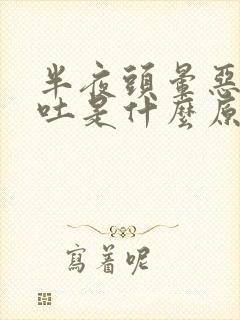 半夜頭暈惡
吐是什麼原
寫着呢